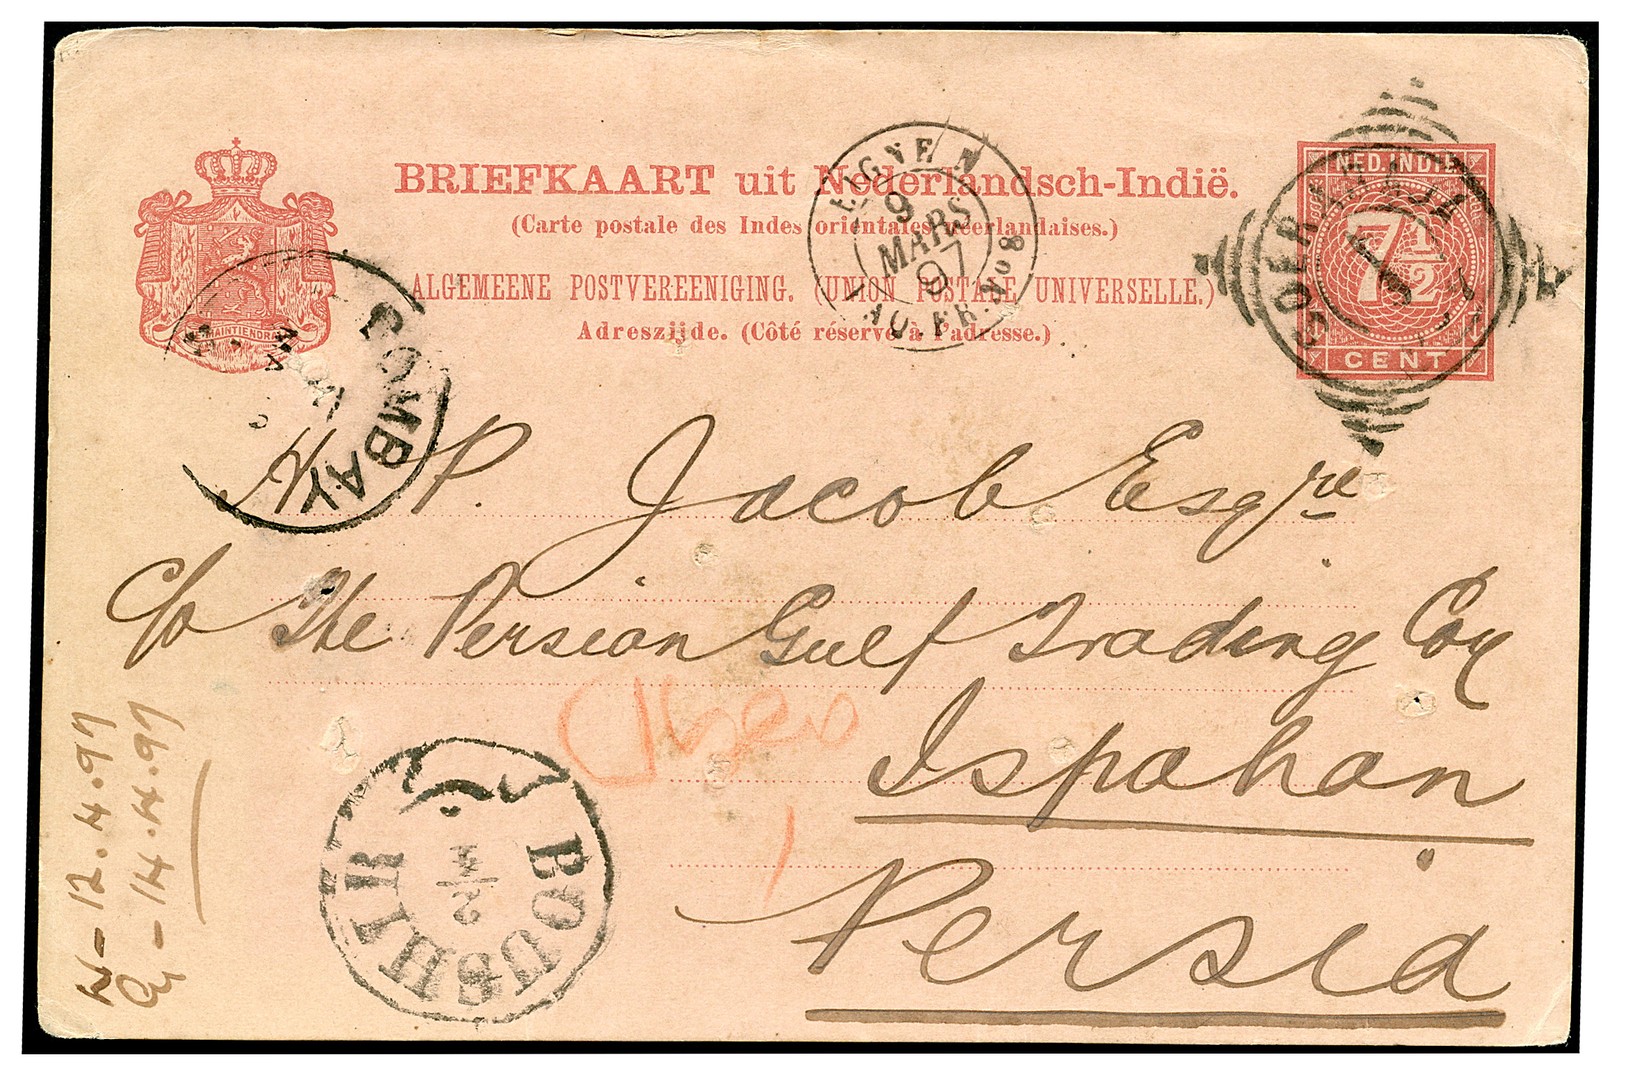 BRIEFKAART uit Nederlandsch-Indië.
(Carte postale des Indes orientales néerlandaises.)
ALGEMEENE POSTVEREENIGING. (UNION POSTALE UNIVERSELLE.)
Adreszijde. (Côté réservé à l'adresse.)
MAINTIENDRAI
NED. INDIE
7½
CENT
SOERABAJA
LIGNE N
PAQ. FR. No 8
9
MARS
97
BOMBAY
P. Jacob Esqre
c/o The Persian Gulf Trading Coy
Ispahan
Persia
BOUSHIR
12.4.97
14.4.97